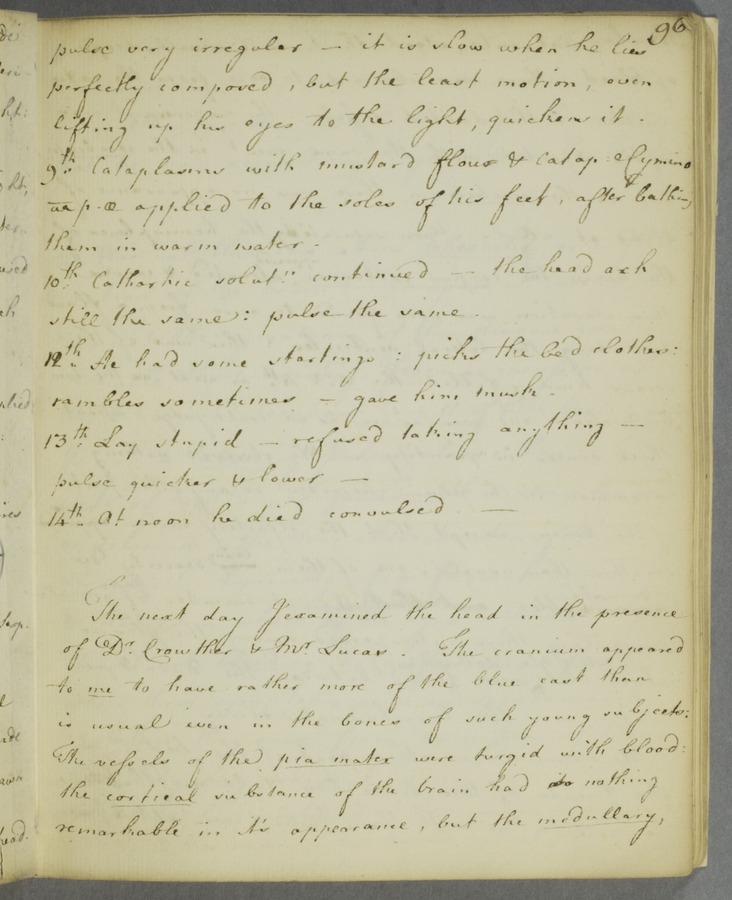 96
pulse very irregular — it is slow when he lies
perfectly composed, but the least motion, even
lifting up his eyes to the light, quickens it.
9th. Cataplasms with mustard flour & Catap: e Cymino
aa p. æ applied to the soles of his feet, after bathing
them in warm water.
10th. Cathartic solutn. continued — the head ach
still the same: pulse the same.
12th. He had some startings: picks the bed clothes:
rambles sometimes — gave him musk.
13th. Lay stupid — refused taking anything —
pulse quicker & lower —
14th. At noon he died convulsed. —
The next day I examined the head in the presence
of Dr. Crowther & Mr. Lucas. The cranium appeared
to me to have rather more of the blue cast than
is usual even in the bones of such young subjects:
The vessels of the pia mater were turgid with blood:
the cortical substance of the brain had nothing
remarkable in it's appearance, but the medullary,